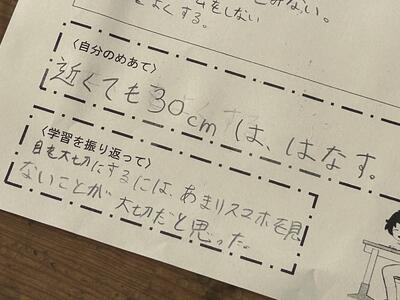 をしない
をよくする。
〈自分のめあて〉
近くても30cmは、はなす。
〈学習を振り返って〉
目を大切にするには、あまりスマホを見
ないことが大切だと思った。